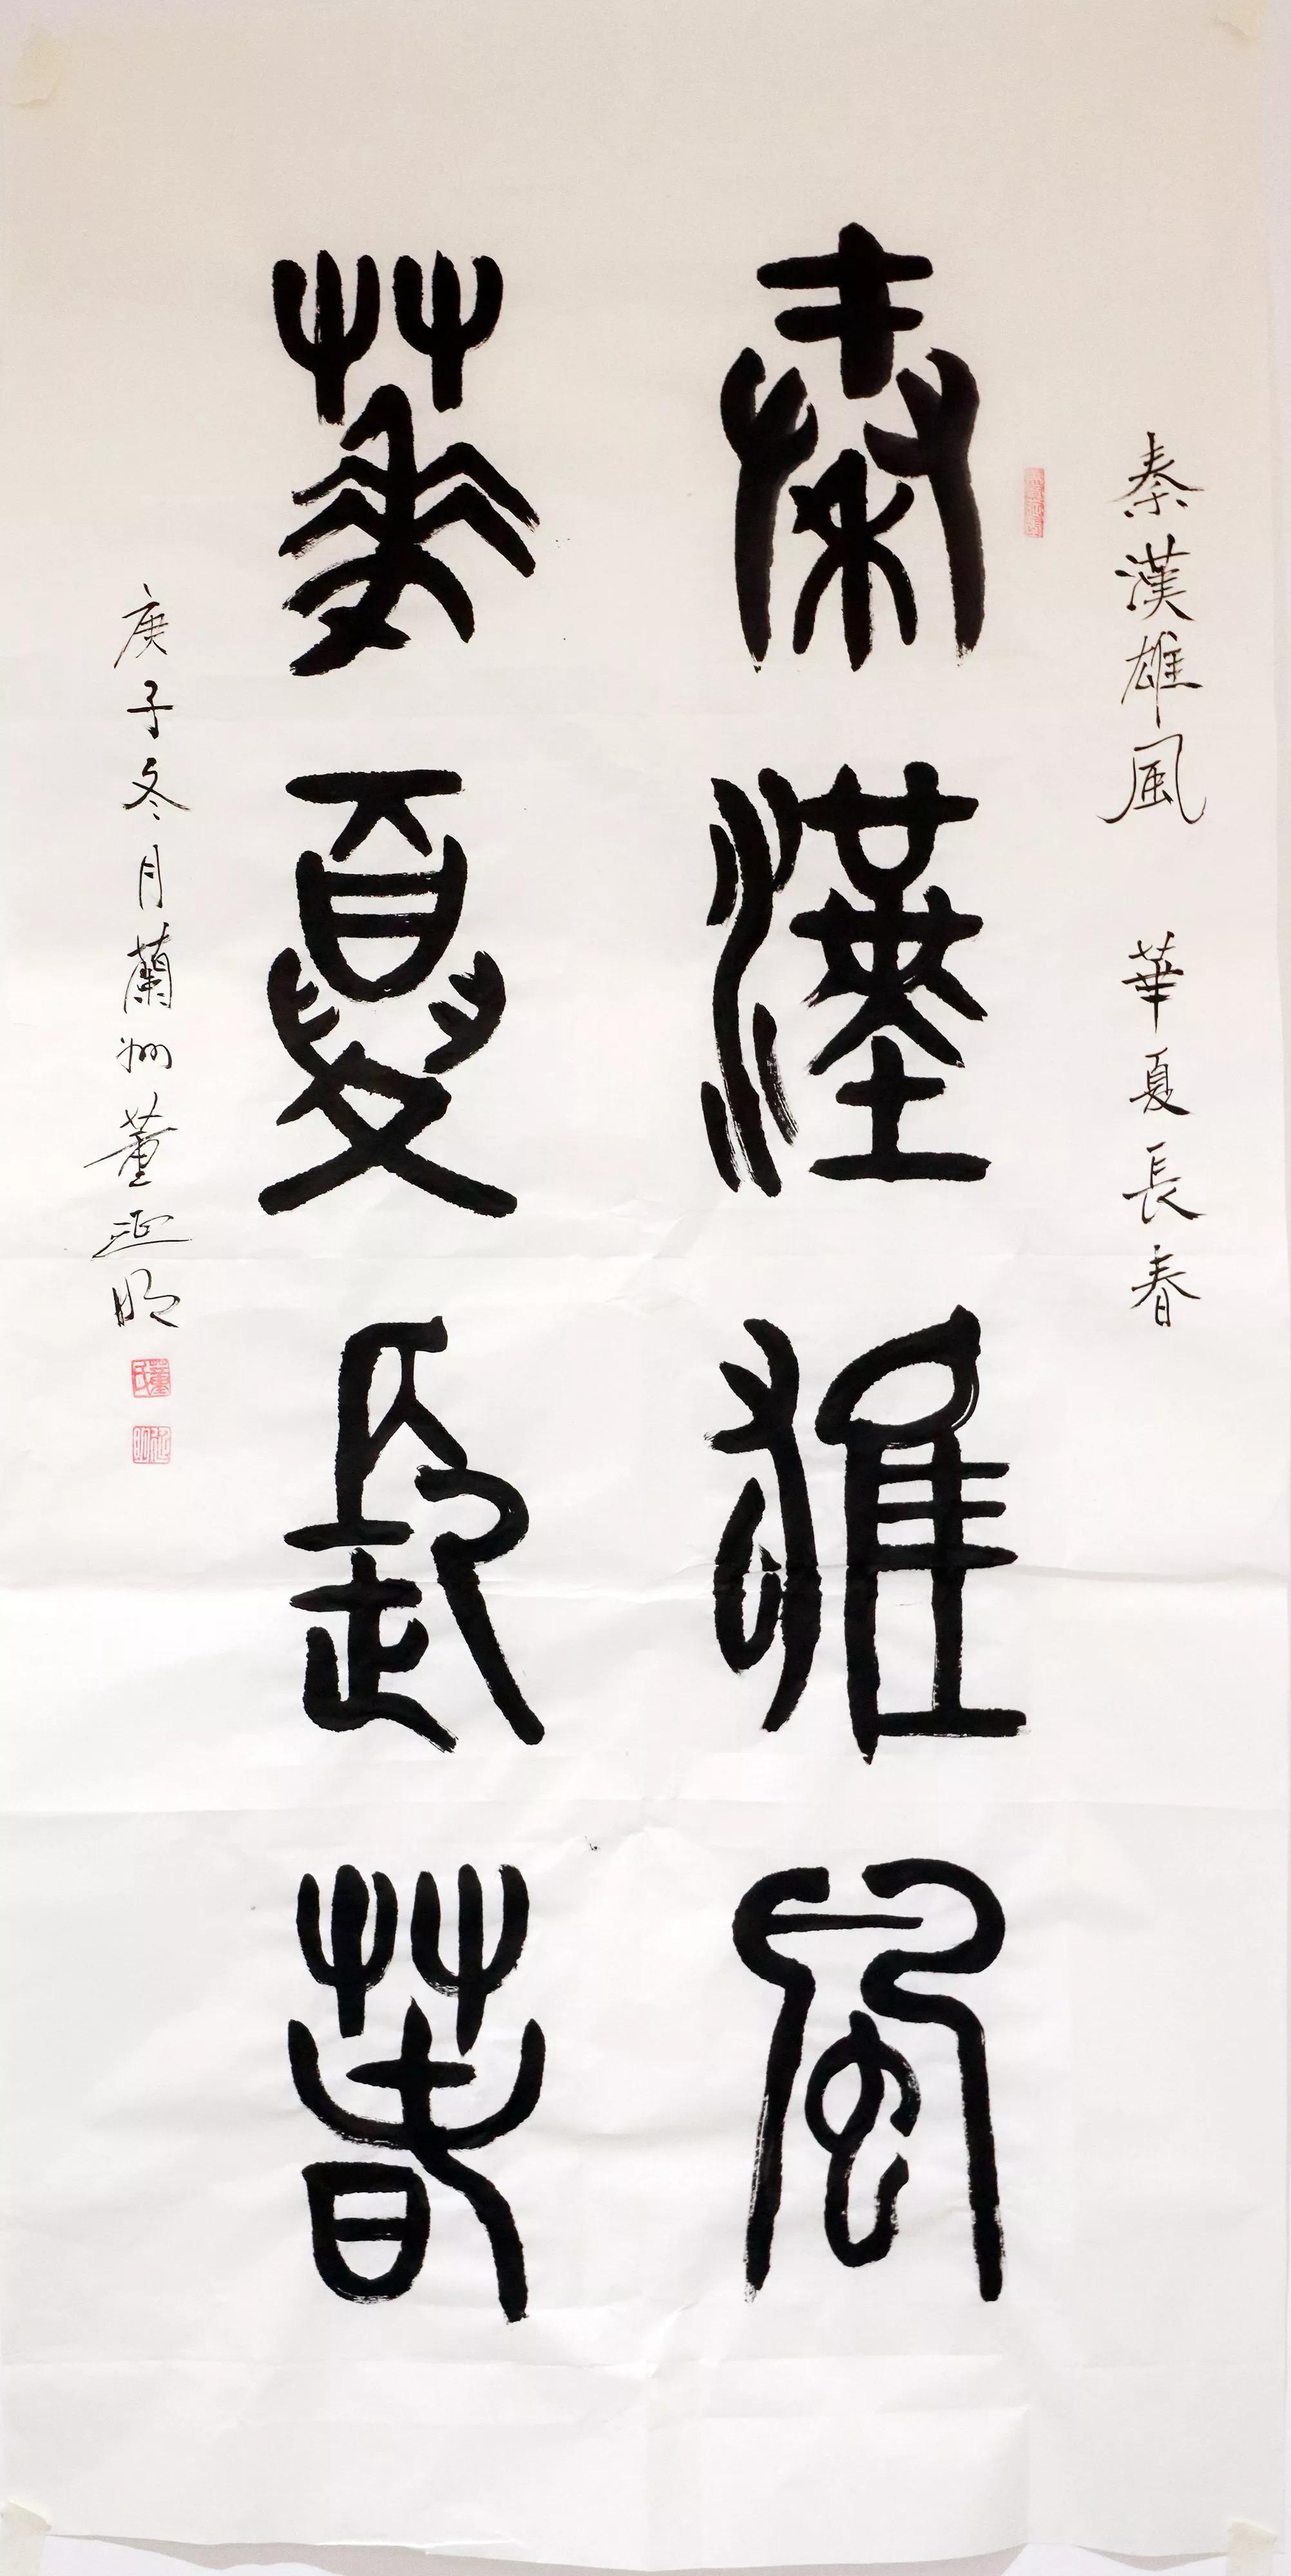 秦漢雄風　華夏長春
秦漢雄風
華夏長春
庚子冬月蘭州董延明
董氏